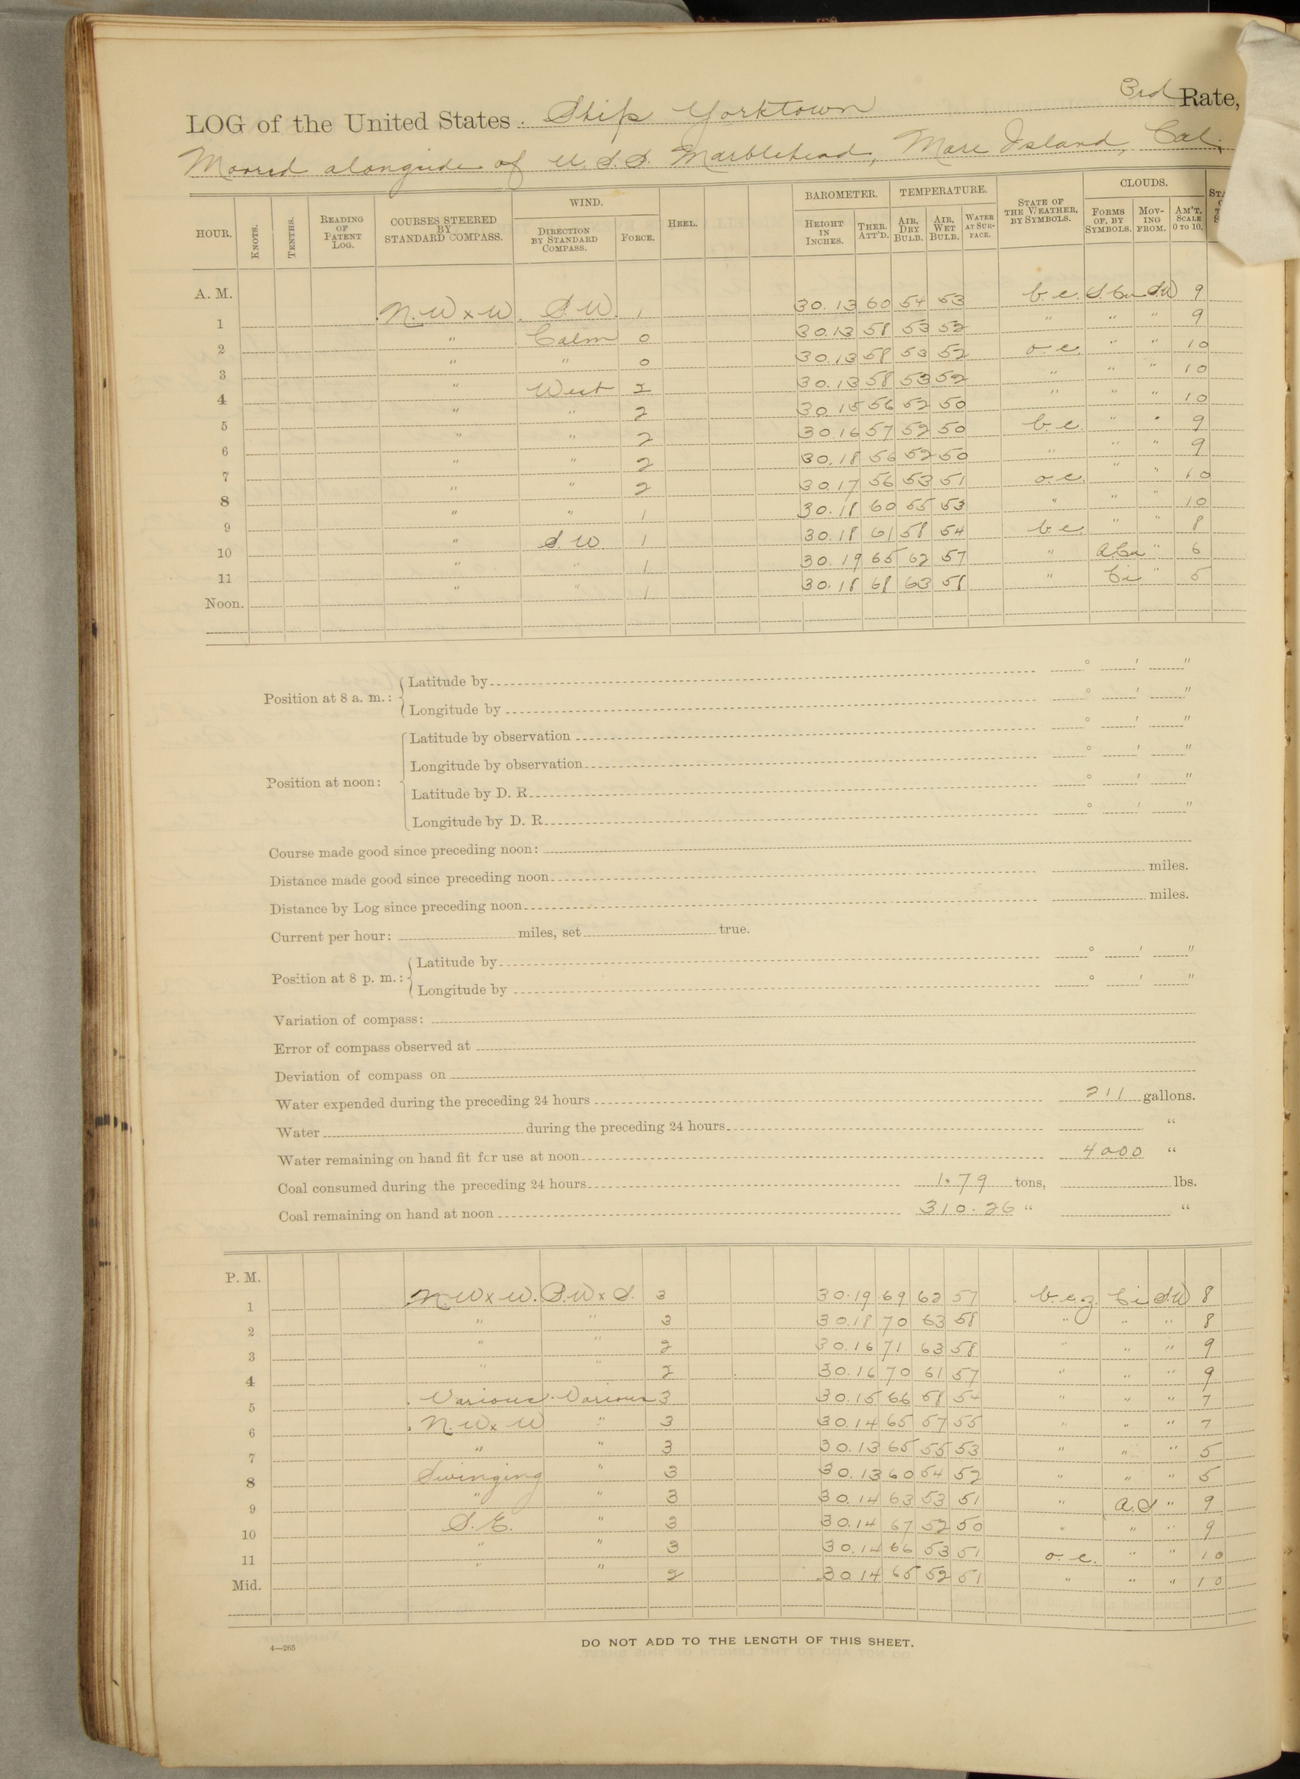 LOG of the United States Ship Yorktown 3rd Rate,
Moored alongside of U.S.S. Marblehead, Mare Island, Cal.
HOUR. KNOTS. TENTHS. READING OF PATENT LOG. COURSES STEERED BY STANDARD COMPASS. WIND. DIRECTION BY STANDARD COMPASS. FORCE. HEEL. BAROMETER. HEIGHT IN INCHES. THER. ATT'D. TEMPERATURE. AIR, DRY BULB. AIR, WET BULB. WATER AT SURFACE. STATE OF THE WEATHER, BY SYMBOLS. CLOUDS. FORMS OF, BY SYMBOLS. MOVING FROM. AM'T, SCALE 0 TO 10.
A. M.
1 N.W x W. S.W. 1 30.13 60 54 53 b.c. S.Cu S.W 9
2 " Calm 0 30.13 58 53 52 " " " 9
3 " " 0 30.13 58 53 52 o.c. " " 10
4 " West 2 30.13 58 53 52 " " " 10
5 " " 2 30.15 56 52 50 " " " 10
6 " " 2 30.16 57 52 50 b.c. " " 9
7 " " 2 30.18 56 52 50 " " " 9
8 " " 2 30.17 56 53 51 o.c. " " 10
9 " " 1 30.18 60 55 53 " " " 10
10 " S.W. 1 30.18 61 58 54 b.c. " " 8
11 " " 1 30.19 65 62 57 " A.Cu " 6
Noon. " " 1 30.18 68 63 58 " Ci " 5
Position at 8 a. m.: Latitude by ° ' "
Longitude by ° ' "
Position at noon: Latitude by observation ° ' "
Longitude by observation ° ' "
Latitude by D. R. ° ' "
Longitude by D. R. ° ' "
Course made good since preceding noon:
Distance made good since preceding noon miles.
Distance by Log since preceding noon miles.
Current per hour: miles, set true.
Position at 8 p. m.: Latitude by ° ' "
Longitude by ° ' "
Variation of compass:
Error of compass observed at
Deviation of compass on
Water expended during the preceding 24 hours 211 gallons.
Water during the preceding 24 hours "
Water remaining on hand fit for use at noon 4000 "
Coal consumed during the preceding 24 hours 1.79 tons, lbs.
Coal remaining on hand at noon 310.26 " "
P. M.
1 N.W x W. S.W x S. 3 30.19 69 62 57 b.c.z. Ci S.W 8
2 " " 3 30.18 70 63 58 " " " 8
3 " " 2 30.16 71 63 58 " " " 9
4 " " 2 30.16 70 61 57 " " " 9
5 Various Various 3 30.15 66 58 " " " 7
6 N.W x W " 3 30.14 65 57 55 " " " 7
7 " " 3 30.13 65 55 53 " " " 5
8 Swinging " 3 30.13 60 54 52 " " " 5
9 " " 3 30.14 63 53 51 " A.S " 9
10 S.E. " 3 30.14 67 52 50 " " " 9
11 " " 3 30.14 66 53 51 o.c. " " 10
Mid. " " 2 30.14 65 52 51 " " " 10
4—265
DO NOT ADD TO THE LENGTH OF THIS SHEET.